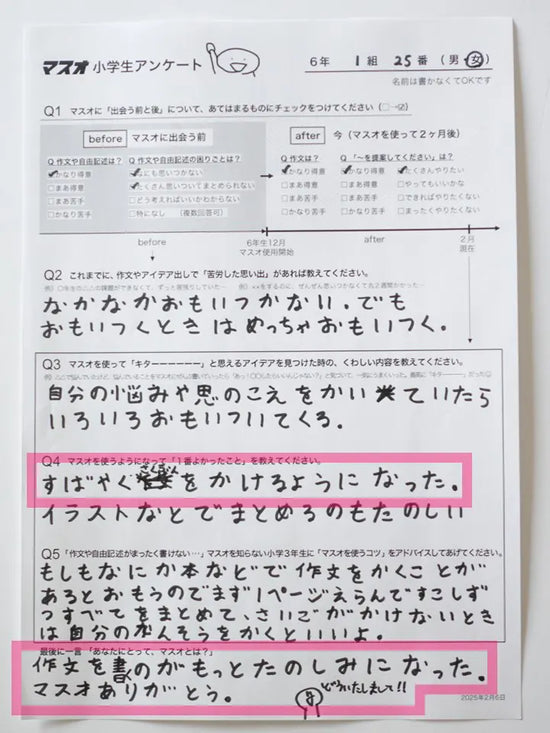 マスオ 小学生アンケート
6年 1組 25番 (男・女)
名前は書かなくてOKです
Q1 マスオに「出会う前と後」について、あてはまるものにチェックをつけてください(□→☑)
before マスオに出会う前
after 今(マスオを使って2ヶ月後)
Q 作文や自由記述は? Q 作文や自由記述の困りごとは? Q 作文は? Q「〜を提案してください」は?
☑かなり得意 ☑なにも思いつかない ☑かなり得意 ☑かなり得意 ☑たくさんやりたい
□まあ得意 ☑たくさん思いついてまとめられない □まあ得意 □まあ得意 □やってもいいかな
□まあ苦手 □どう考えればいいかわからない □まあ苦手 □まあ苦手 □できればやりたくない
□かなり苦手 □特になし (複数回答可) □かなり苦手 □かなり苦手 □まったくやりたくない
before 6年生12月 マスオ使用開始 after 2月 現在
Q2 これまでに、作文やアイデア出しで「苦労した思い出」があれば教えてください。
なかなかおもいつかない。でも
おもいつくときはめっちゃおもいつく。
Q3 マスオを使って「キターーーーーー」と思えるアイデアを見つけた時の、くわしい内容を教えてください。
自分の悩みや思のこえをかいていたら
いろいろおもいついてくる。
Q4 マスオを使うようになって「1番よかったこと」を教えてください。
さくぶん
すばやくをかけるようになった。
イラストなとでまとめるのもたのしい
Q5「作文や自由記述がまったく書けない…」マスオを知らない小学3年生に「マスオを使うコツ」をアドバイスしてあげてください。
もしもなにか本などで作文をかくことが
あるとおもうのでまず1ページえらんですこしず
つすべてをまとめて、さいごがかけないとき
は自分のかんそうをかくといいよ。
最後に一言「あなたにとって、マスオとは?」
作文を書のがもっとたのしみになった。
マスオありがとう。
どういたしまして!!
2025年2月6日